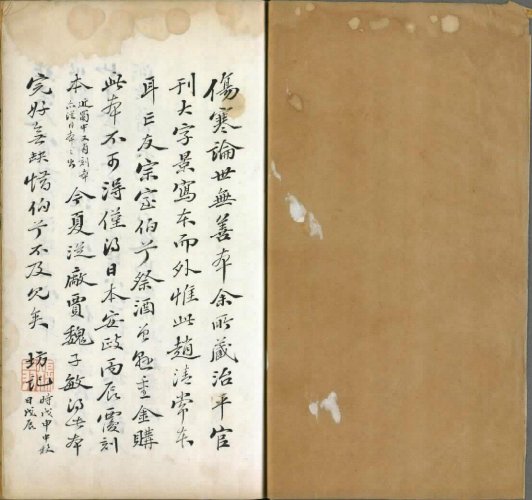 傷寒論世無善本余所藏治平官
刊大字景寫本而外惟此趙清常本
耳亡友宗室伯兮祭酒曾懸重金購
此本不可得僅得日本安政丙辰覆刻
本近蜀中又有刻本亦從日本本出今夏從廠賈魏子敏得此本
完好無缺惜伯兮不及見矣 坊記 時戊申中秋日戊辰